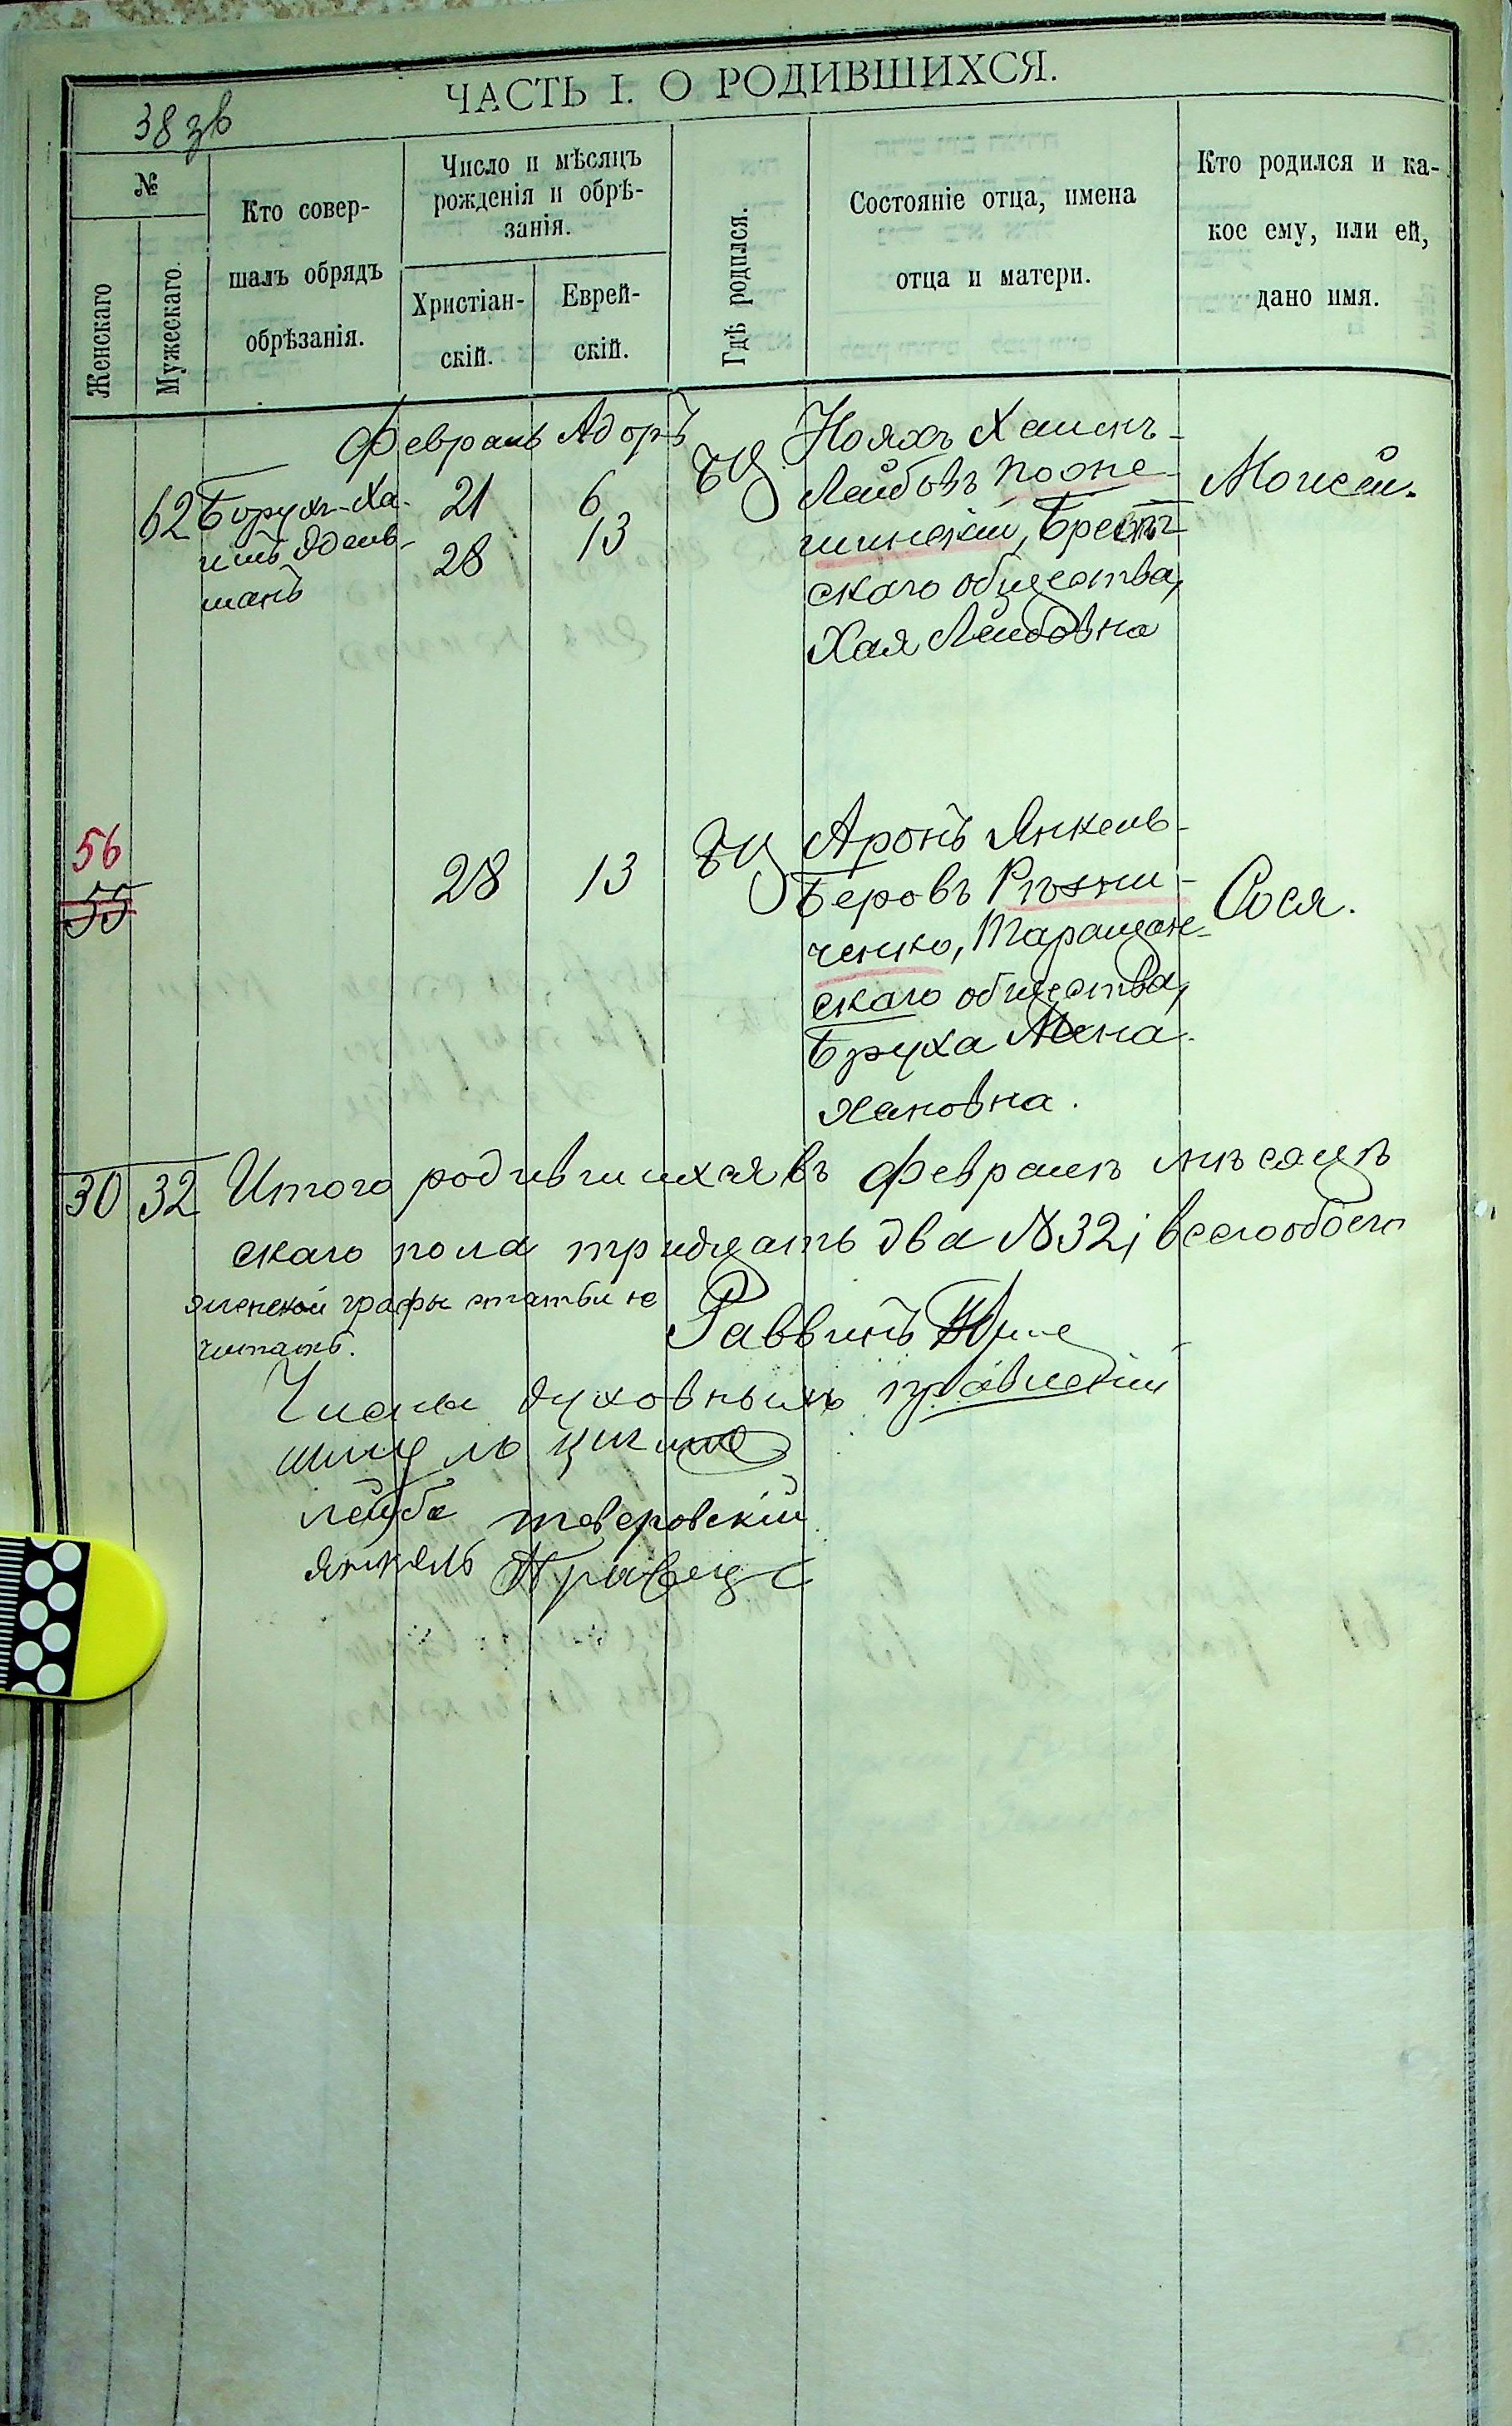 ЧАСТЬ I. О РОДИВШИХСЯ.
38 зв
№
Женскаго
Мужескаго.
Кто совер-
шалъ обрядъ
обрѣзанія.
Число и мѣсяцъ
рожденія и обрѣ-
занія.
Христіан-
скій.
Еврей-
скій.
Гдѣ родился.
Состояніе отца, имена
отца и матери.
Кто родился и ка-
кое ему, или ей,
дано имя.
Февраль Адоръ
62
Борухъ-Ха-
имъ Эдель-
манъ
21
28
6
13
БЦ
Нояхъ Хаимъ-
Лейбовъ
Брест-
скаго общества,
Хая Лейбовна
Моисей.
56
55
28
13
БЦ
Аронъ Янкель-
Беровъ Рѣзни-
ченко, Таращан-
скаго общества,
Бруха Мена-
хановна.
Сося.
30 32 Итого родившихся въ Февралѣ мѣсяцѣ
скаго пола тридцать два №32; всего обоего
женской графы статьи не
читать.
Раввинъ
Члены духовныхъ правленій
лейба тверовскій
янкель Кравець